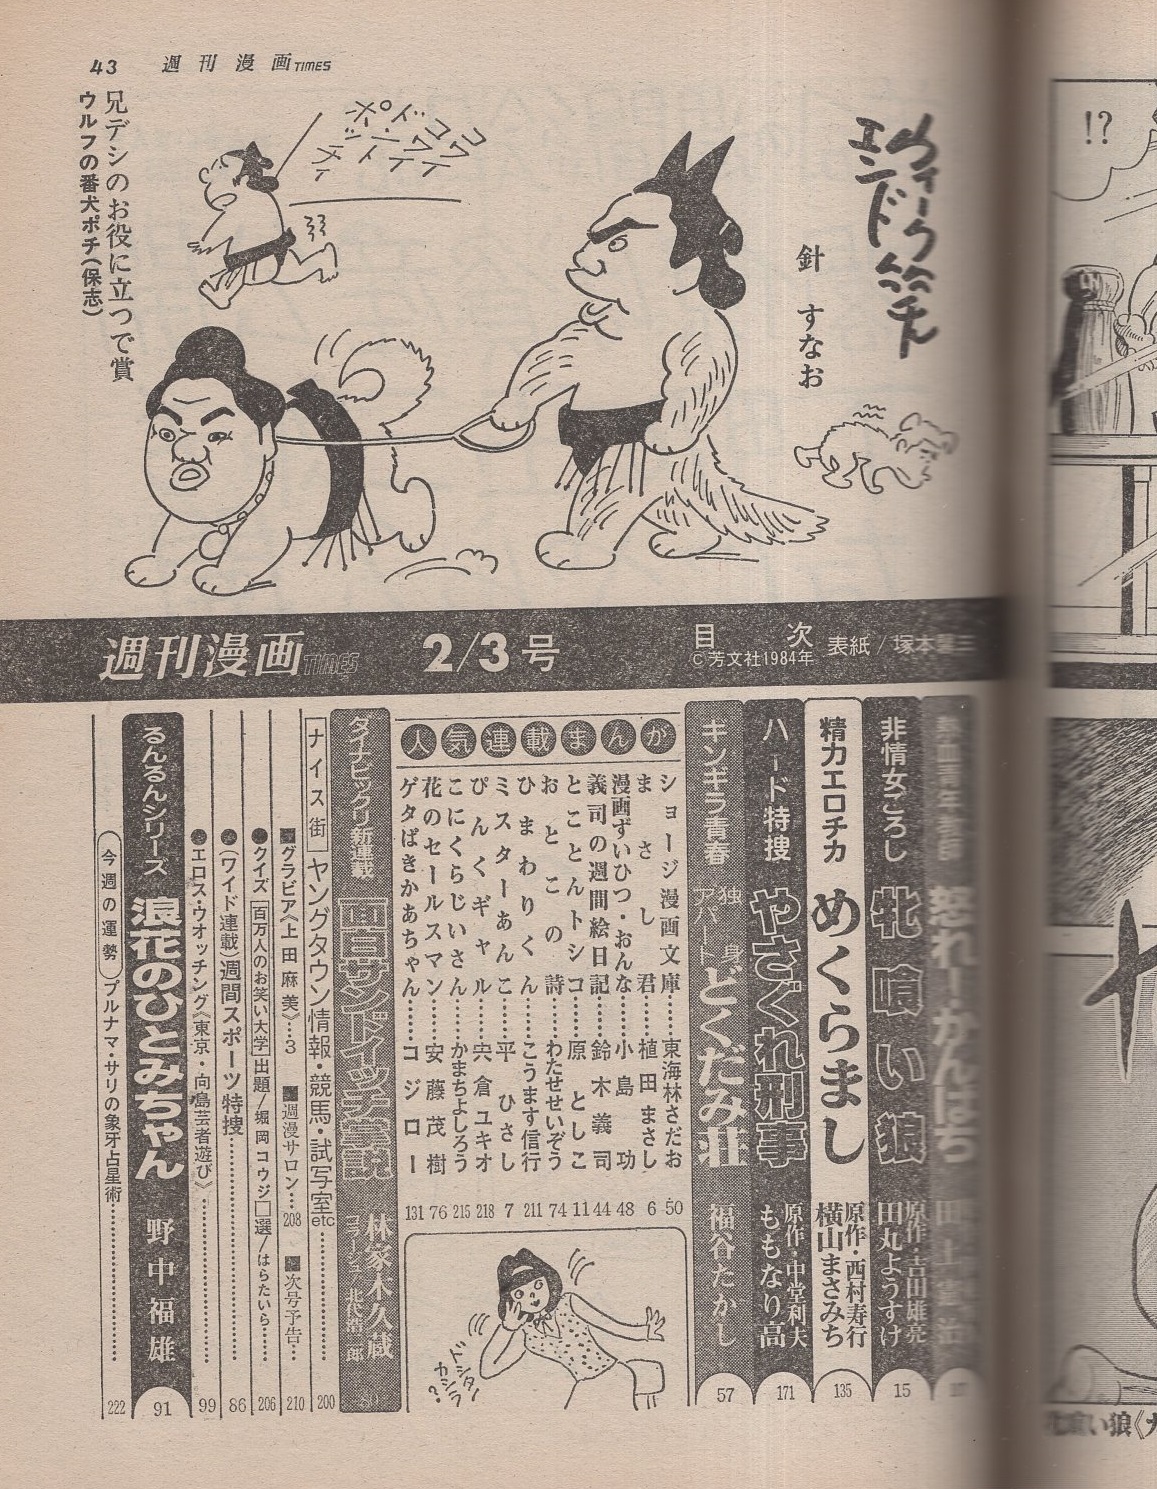 43 週刊漫画TIMES
ウィークエンド
針 すなお
兄デシのお役に立つで賞
ウルフの番犬ポチ(保志)
!?
週刊漫画TIMES 2/3号 目次 ©芳文社1984年 表紙/塚本馨三
怒れ!かんばち
非情女ごろし 牝喰い狼 原作・吉田雄亮 田丸ようすけ 15
精力エロチカ めくらまし 原作・西村寿行 横山まさみち 135
ハード特捜 やさぐれ刑事 原作・中堂利夫 ももなり高 171
ギンギラ青春 独身アパートどくだみ荘 福谷たかし 57
人気連載まんが
ショージ漫画文庫……東海林さだお 50
まさし君……植田まさし 6
漫画ずいひつ・おんな……小島功 48
義司の週間絵日記……鈴木義司 44
とことんトシコ……原としこ 11
おとこの詩……わたせせいぞう 74
ひまわりくん……こうます信行 211
ミスターあんこ……平ひさし 7
ぴんくギャル……宍倉ユキオ 218
こにくらじいさん……かまちよしろう 215
花のセールスマン……安藤茂樹 76
ゲタばきかあちゃん……コジロー 131
ダイナビックリ新連載 面白サンドイッチ事説 林家木久蔵
ナイス街 ヤングタウン情報・競馬・試写室etc…… 200
■グラビア《上田麻美》…3 ■週漫サロン…208 ■次号予告… 210
●クイズ 百万人のお笑い大学 出題/堀岡コウジ□選/はらたいら…… 206
●(ワイド連載)週間スポーツ特捜…… 86
●エロス・ウオッチング《東京・向島芸者遊び》…… 99
るんるんシリーズ 浪花のひとみちゃん 野中福雄 91
今週の運勢 プルナマ・サリの象牙占星術…… 222